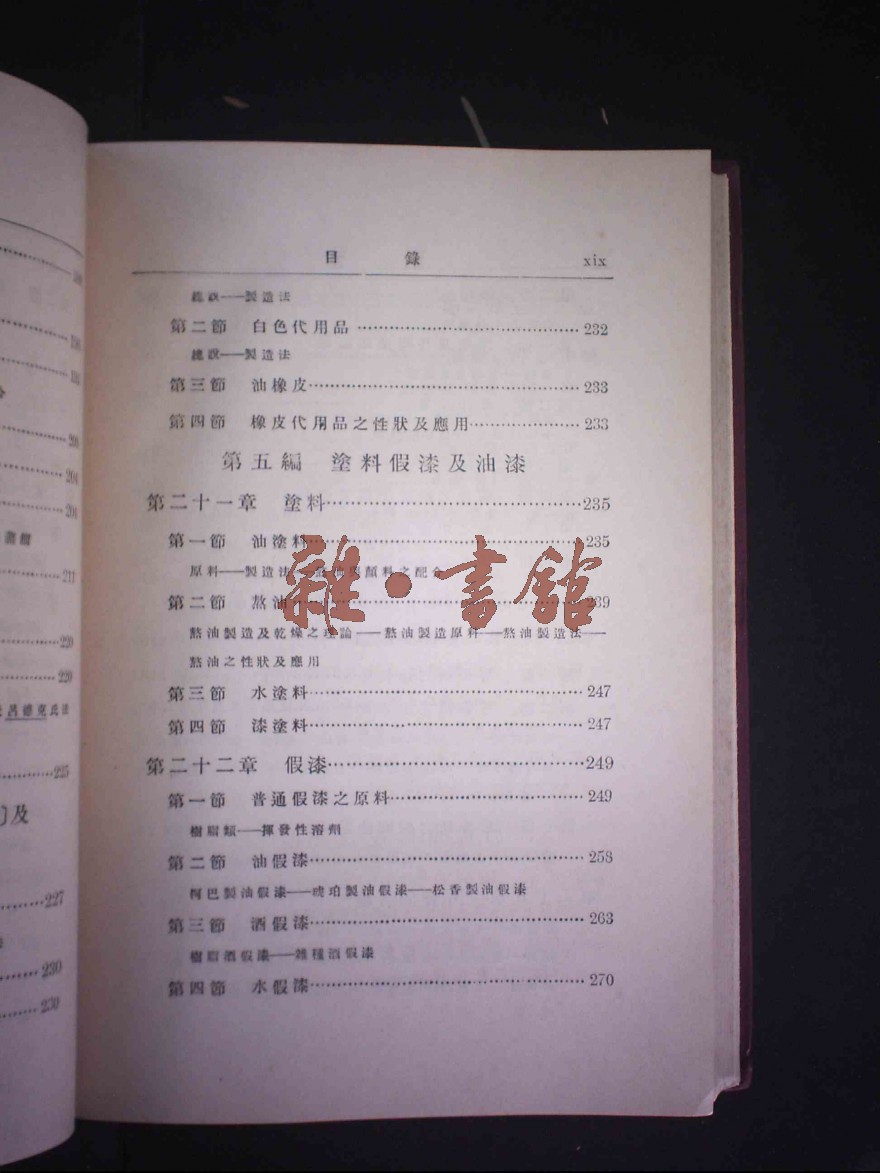 目 錄 xix
總說——製造法
第二節 白色代用品……………………………232
總說——製造法
第三節 油橡皮……………………………233
第四節 橡皮代用品之性狀及應用………………233
第五編 塗料假漆及油漆
第二十一章 塗料……………………………235
第一節 油塗料……………………………235
原料——製造法 顏料之配合
第二節 熬油……………………………239
熬油製造及乾燥之理論——熬油製造原料——熬油製造法——
熬油之性狀及應用
第三節 水塗料……………………………247
第四節 漆塗料……………………………247
第二十二章 假漆……………………………249
第一節 普通假漆之原料……………………249
樹脂類——揮發性溶劑
第二節 油假漆……………………………258
柯巴製油假漆——琥珀製油假漆——松香製油假漆
第三節 酒假漆……………………………263
樹脂酒假漆——雜種酒假漆
第四節 水假漆……………………………270
雜·書館
204
204
211
220
220
呂德克氏法
225
及
227
230
230